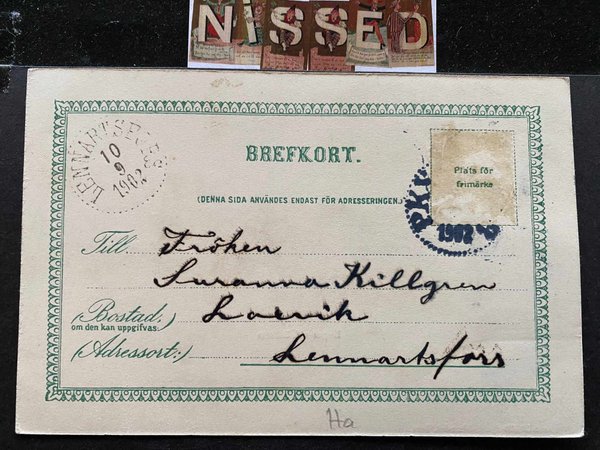 NISSED
LENNARTSFORS
10
9
1902
BREFKORT.
(DENNA SIDA ANVÄNDES ENDAST FÖR ADRESSERINGEN.)
Plats för
frimärke
PKP
1902
Till Fröken
Suranna Killgren
Bostad:
om den kan uppgifvas. Loevik
(Adressort:) Lennartsfors
Ha